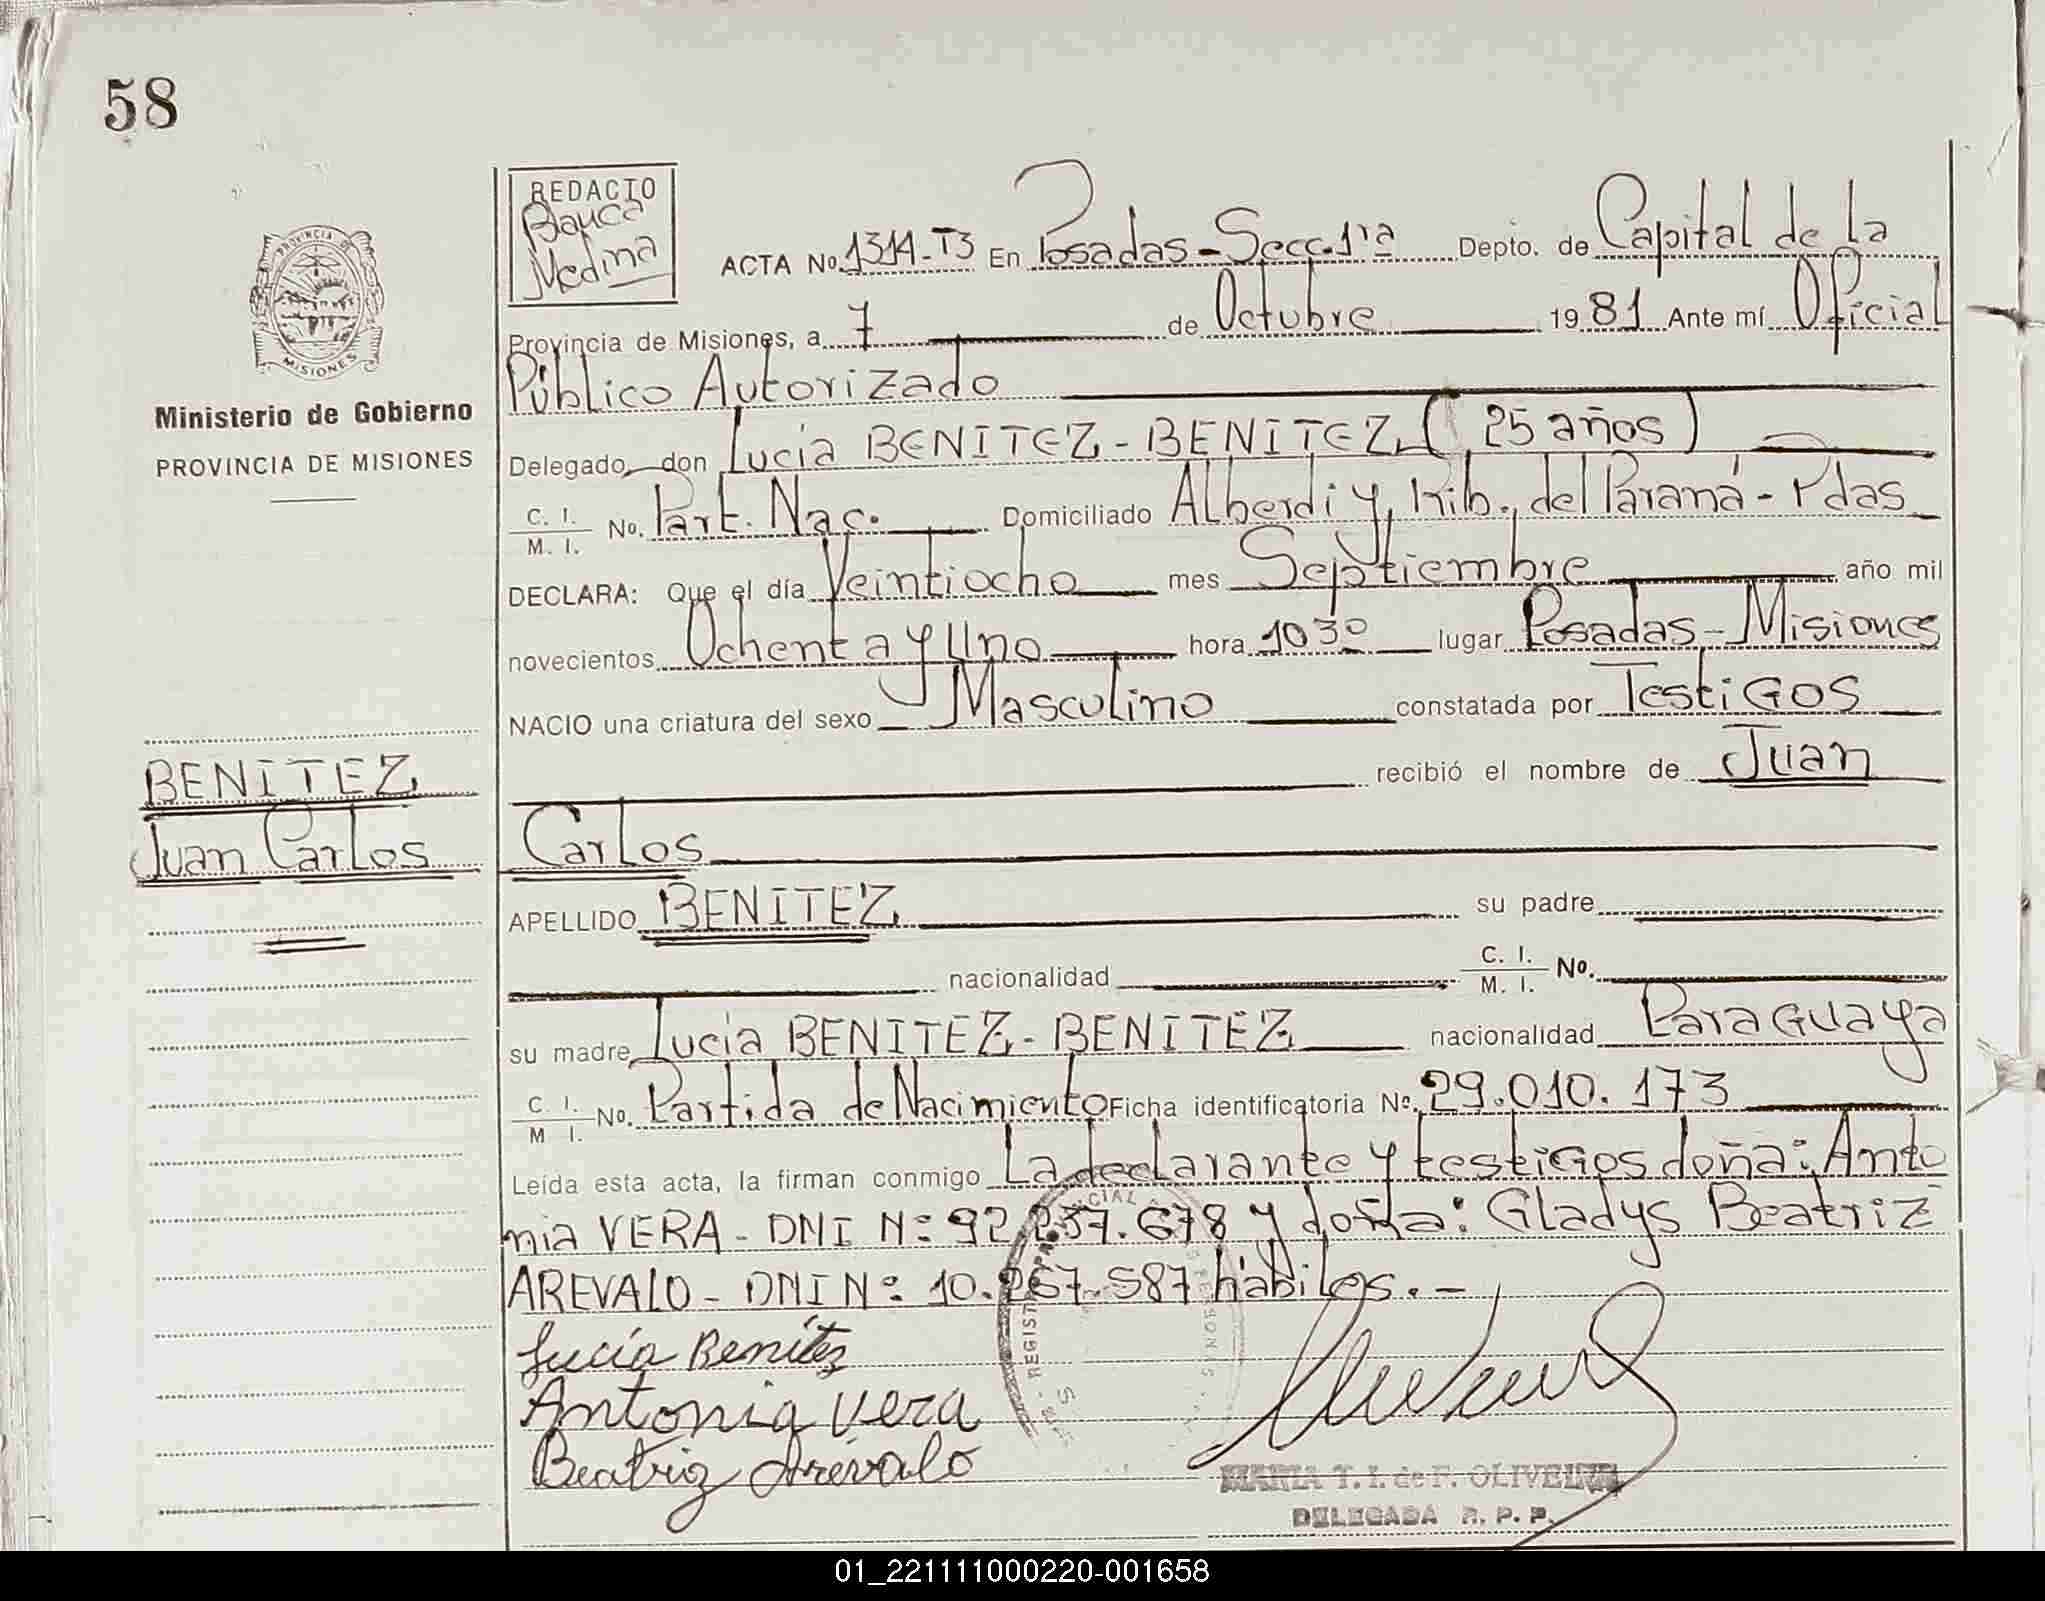 58
REDACTO
Blanca
Medina
PROVINCIA DE
MISIONES
Ministerio de Gobierno
PROVINCIA DE MISIONES
BENITEZ
Juan Carlos
ACTA No. 1314-T3 En Posadas - Secc. 1ra Depto. de Capital de la
Provincia de Misiones, a 7 de Octubre 19 81 Ante mí Oficial
Público Autorizado
Delegado, don Lucia BENITEZ - BENITEZ (25 años)
C. I.
M. I. No. Part. Nac. Domiciliado Alberdi y, Rib. del Paraná - Pdas
DECLARA: Que el día Veintiocho mes Septiembre año mil
novecientos Ochenta y Uno hora 1030 lugar Posadas - Misiones
NACIO una criatura del sexo Masculino constatada por Testigos
recibió el nombre de Juan
Carlos
APELLIDO BENITEZ su padre
nacionalidad C. I.
M. I. No.
su madre Lucia BENITEZ - BENITEZ nacionalidad Paraguaya
C. I.
M I. No. Partida de Nacimiento Ficha identificatoria No. 29.010.173
Leída esta acta, la firman conmigo La declarante y testigos doña: Anto
nia VERA - DNI Nº 92.237.678 y doña: Gladys Beatriz
AREVALO - DNI Nº 10.267.587 hábiles. -
Lucía Benítez
Antonia Vera
Beatriz Arévalo
MARIA T. I. de F. OLIVEIRA
DELEGADA R. P. P.
01_221111000220-001658